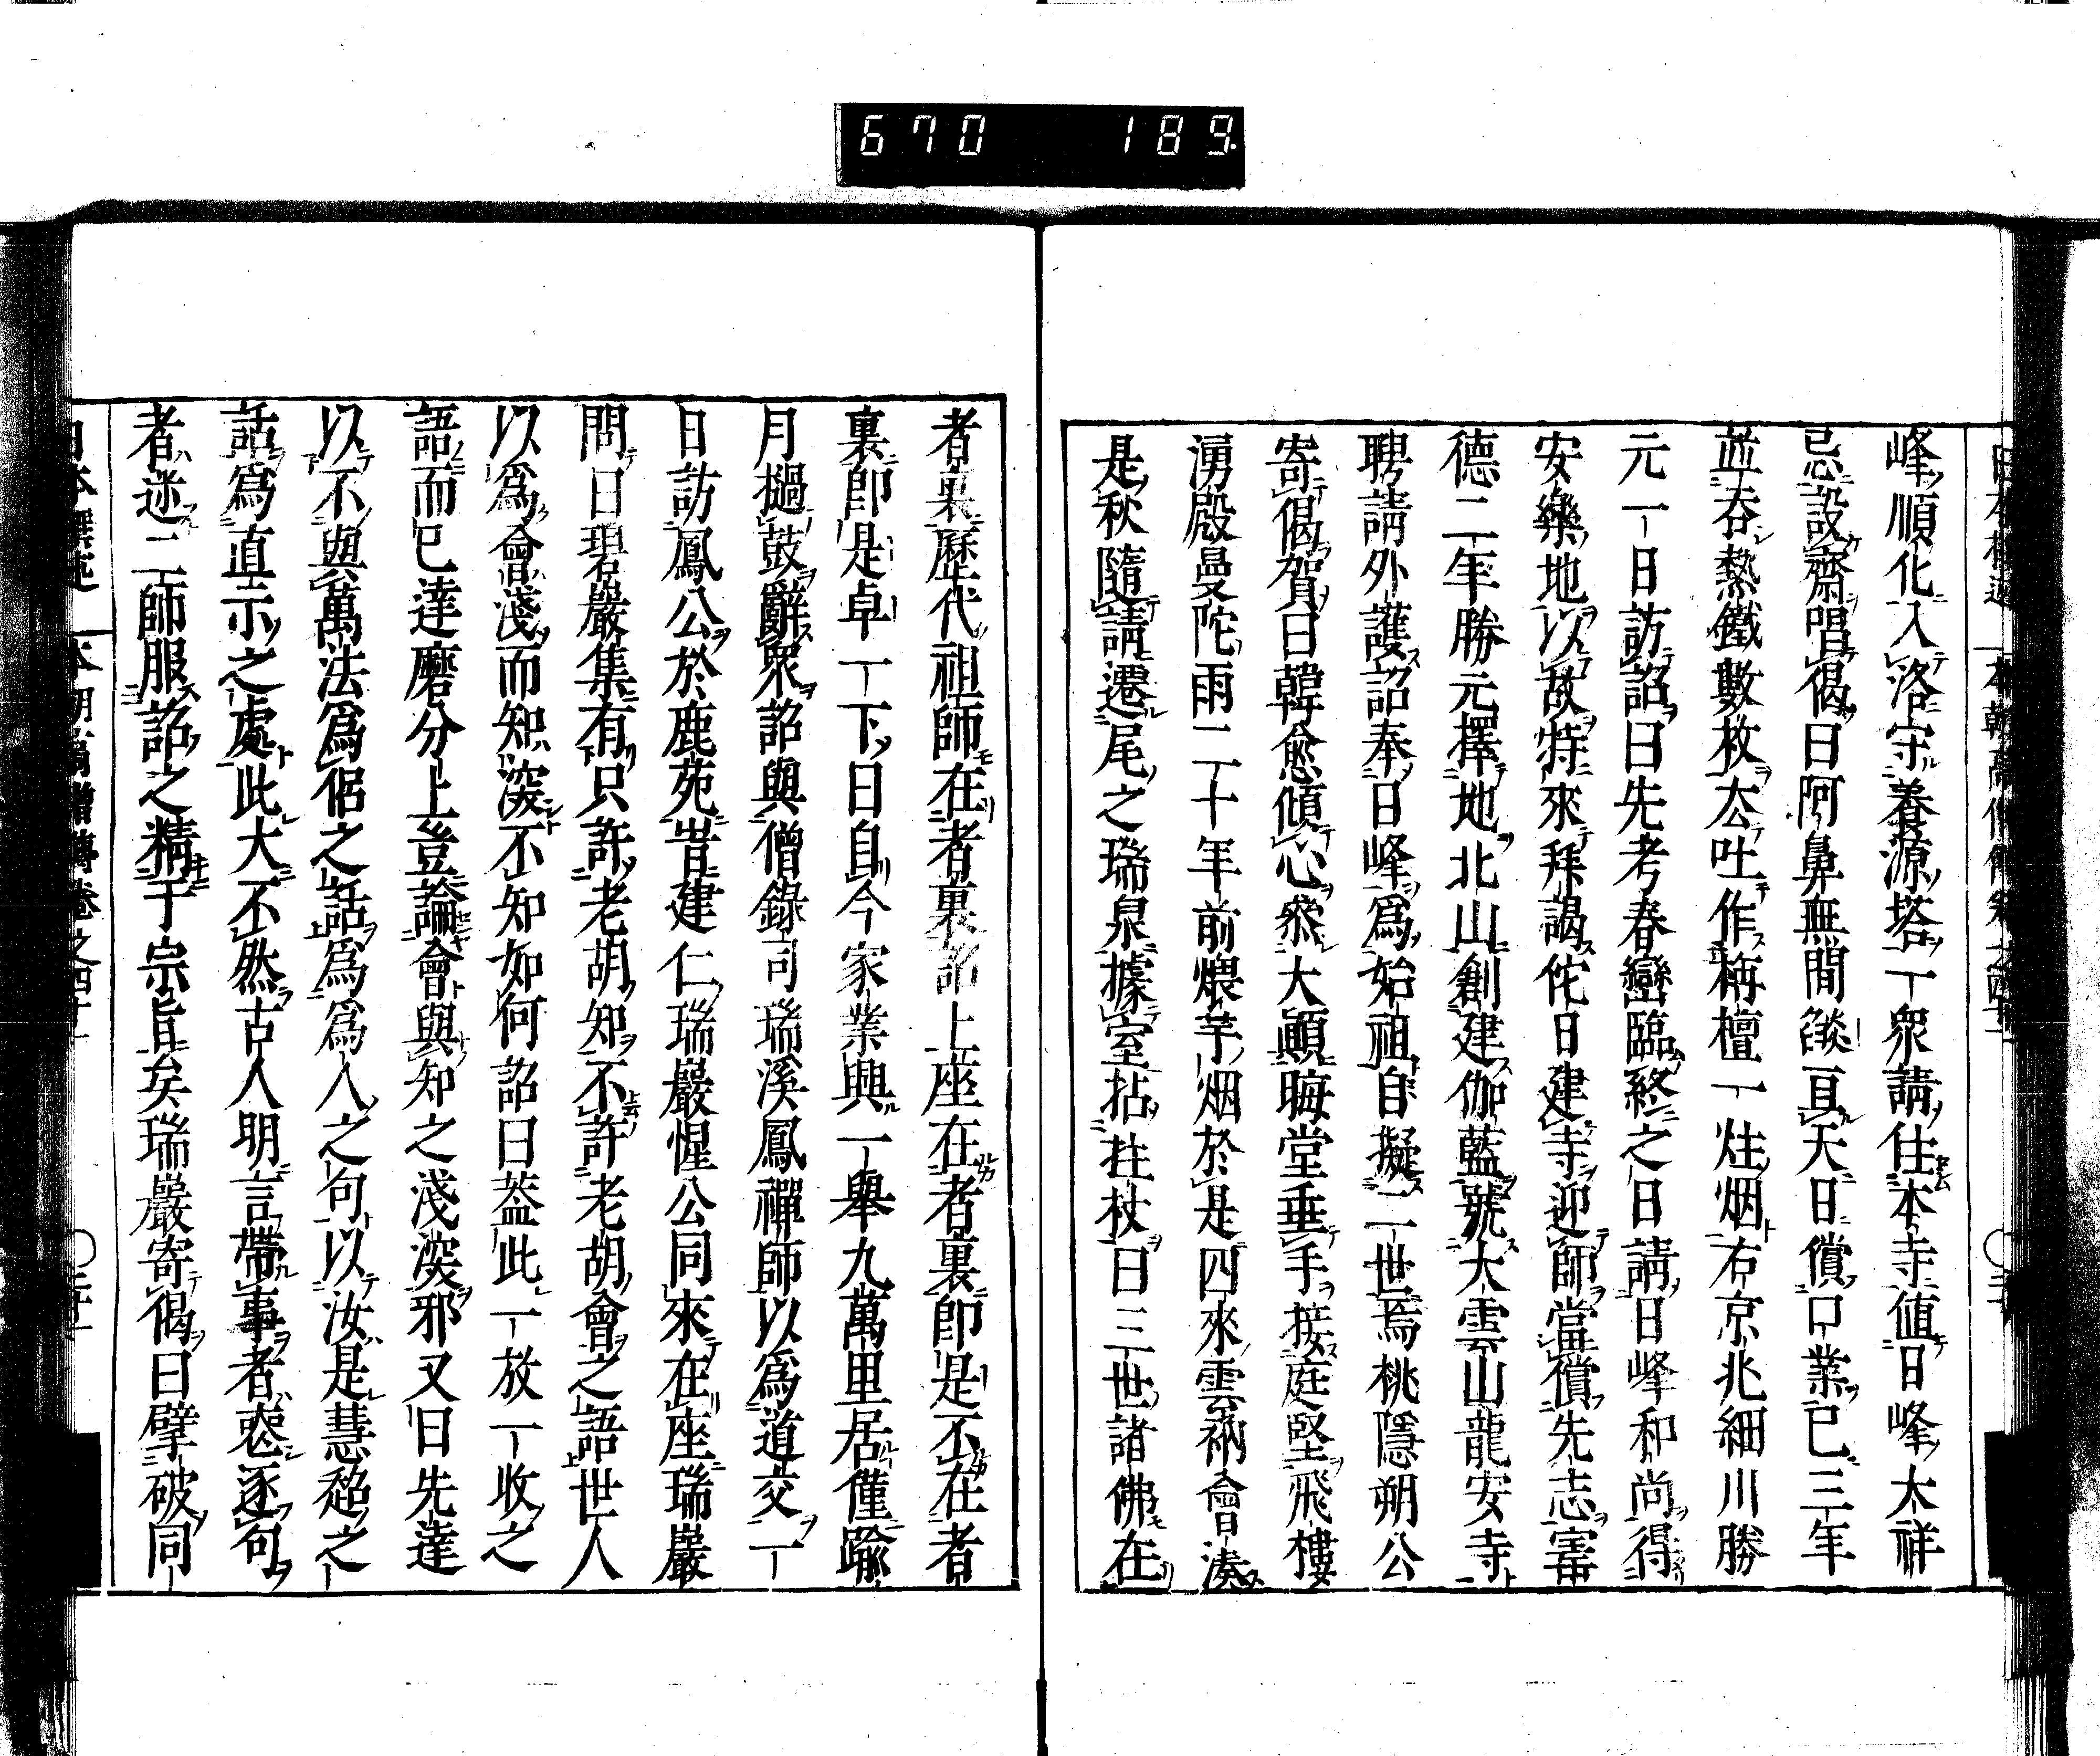 670 189
峰順化入洛守養源塔一衆請住本寺值日峰大祥
忌設齋唱偈曰阿鼻無間燄亘天日償口業已三年
並吞熱鐵數枚去吐作栴檀一炷烟右京兆細川勝
元一日訪詔曰先考春巒臨終之日請日峰和尚得
安樂地以故特來拜謁佗日建寺迎師當償先志寶
德二年勝元擇地北山創建伽藍號大雲山龍安寺
聘請外護詔奉日峰爲始祖自擬二世焉桃隱朔公
寄偈賀曰韓愈傾心參大顚晦堂垂手接庭堅飛樓
湧殿曼陀雨二十年前煨芋烟於是四來雲衲會湊
是秋隨請遷尾之瑞泉據室拈拄杖曰三世諸佛在
者裏歷代祖師在者裏詔上座在者裏卽是不在者
裏卽是卓一下曰自今家業興一舉九萬里居僅踰
月撾鼓辭衆詔與僧錄司瑞溪鳳禪師以爲道交一
日訪鳳公於鹿苑昔建仁瑞巖惺公同來在座瑞巖
問曰碧巖集有只許老胡知不許老胡會之語世人
以爲會淺而知深不知如何詔曰蓋此一放一收之
語而已達磨分上豈論會與知之淺深邪又曰先達
以不與萬法爲侶之話爲爲人之句以汝是慧超之
話爲直示之處此大不然古人明言帶事者惑逐句
者迷二師服詔之精于宗旨矣瑞巖寄偈曰擘破同
日本撰述 本朝高僧傳卷之四十一